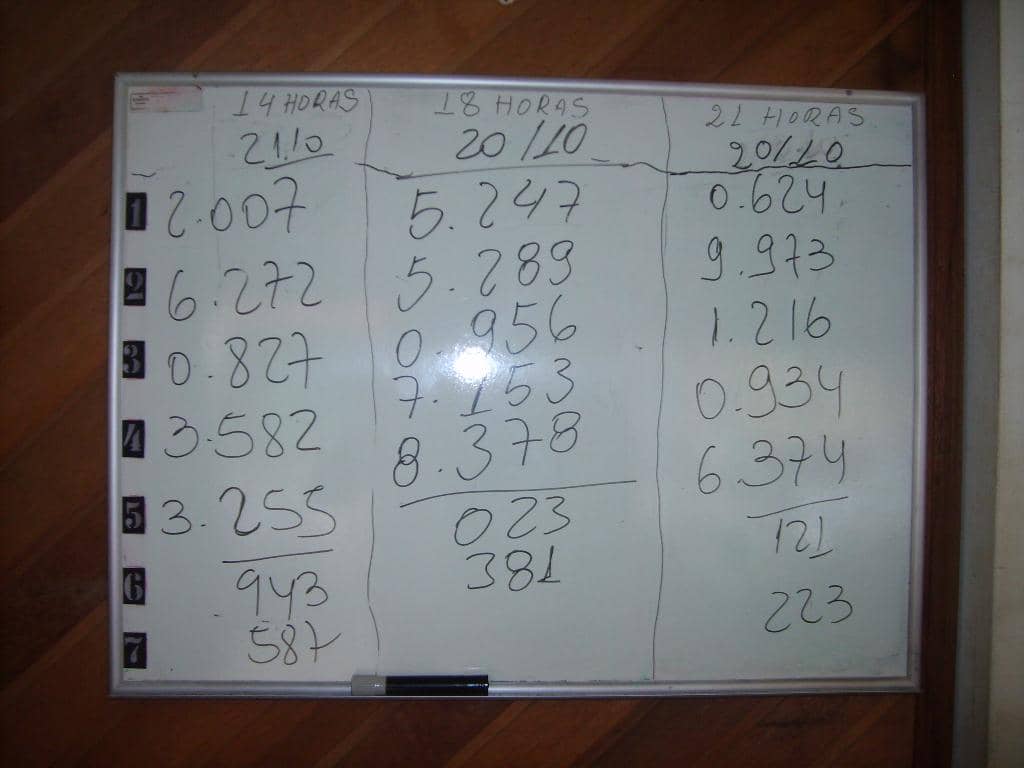 14 HORAS
21.10
1 2.007
2 6.272
3 0.827
4 3.582
5 3.255
6 943
7 587
18 HORAS
20/10
5.247
5.289
0.956
7.153
8.378
023
381
21 HORAS
20/10
0.624
9.973
1.216
0.934
6.374
121
223